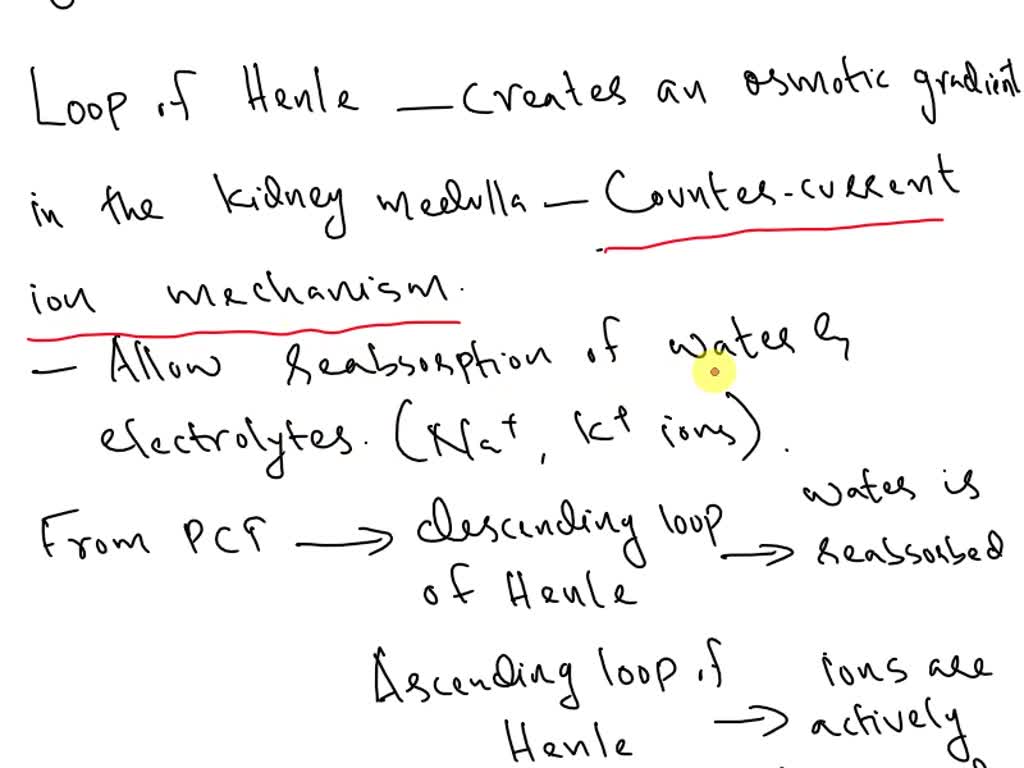 Loop of Henle — creates an osmotic gradient
in the kidney medulla — Counter-current
ion mechanism.
— Allow reabsorption of water &
electrolytes. (Na+, K+ ions).
From PCT → descending loop of Henle → water is reabsorbed
Ascending loop of Henle → ions are actively